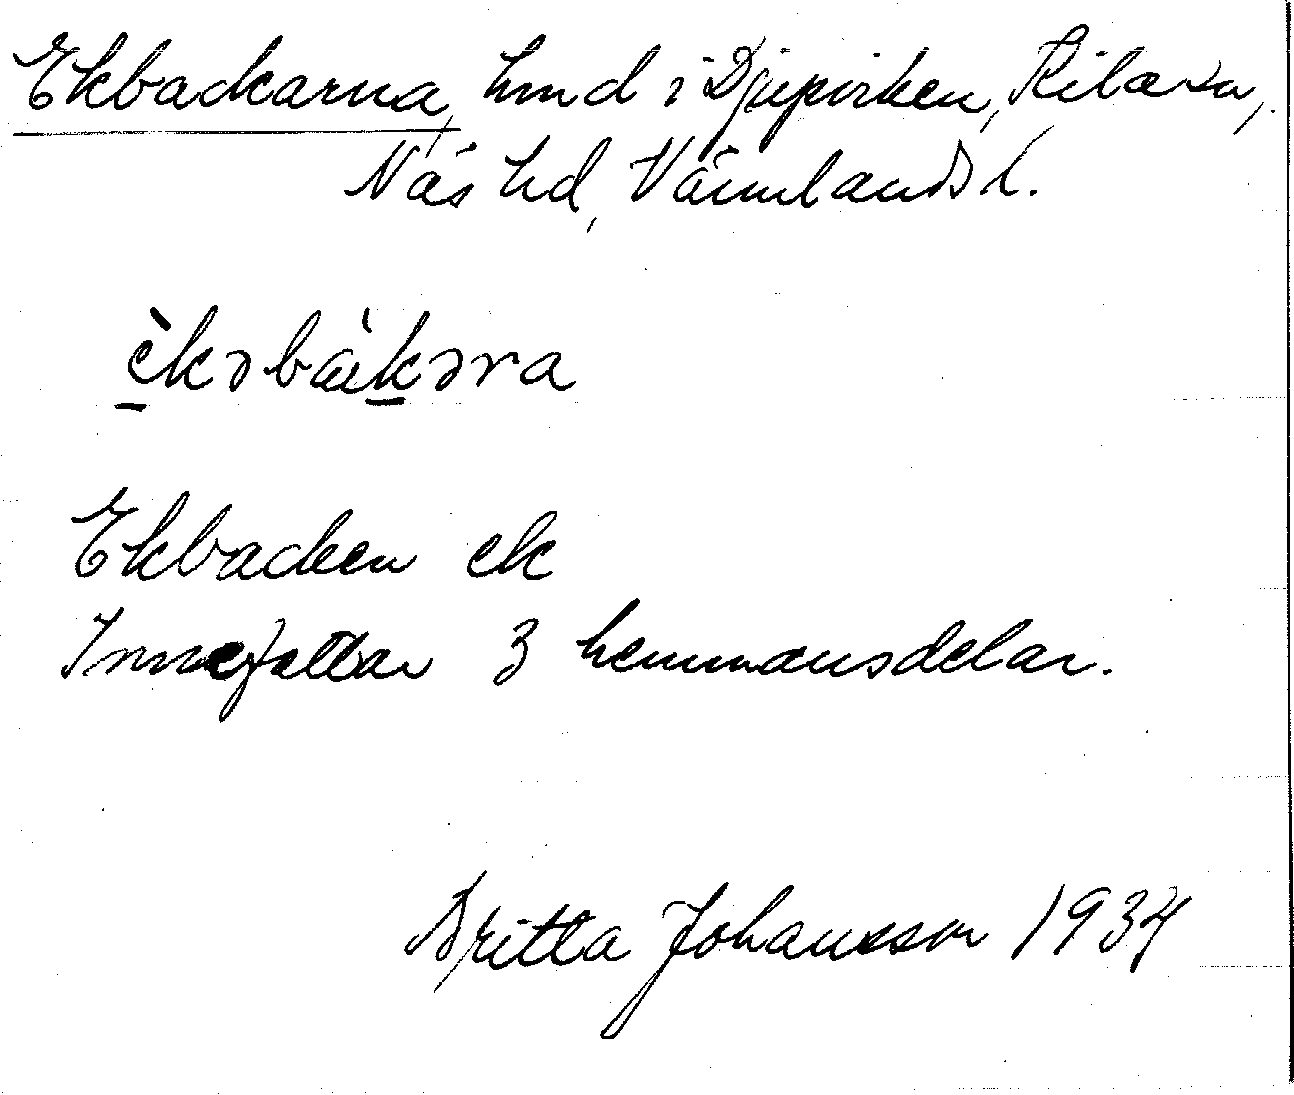 Ekbackarna, hmd i Djupviken, Kila sn,
Näs hd, Värmlands l.
è̠kəbàk̠əra
Ekbacken ek
Innefattar 3 hemmansdelar.
Britta Johansson 1934